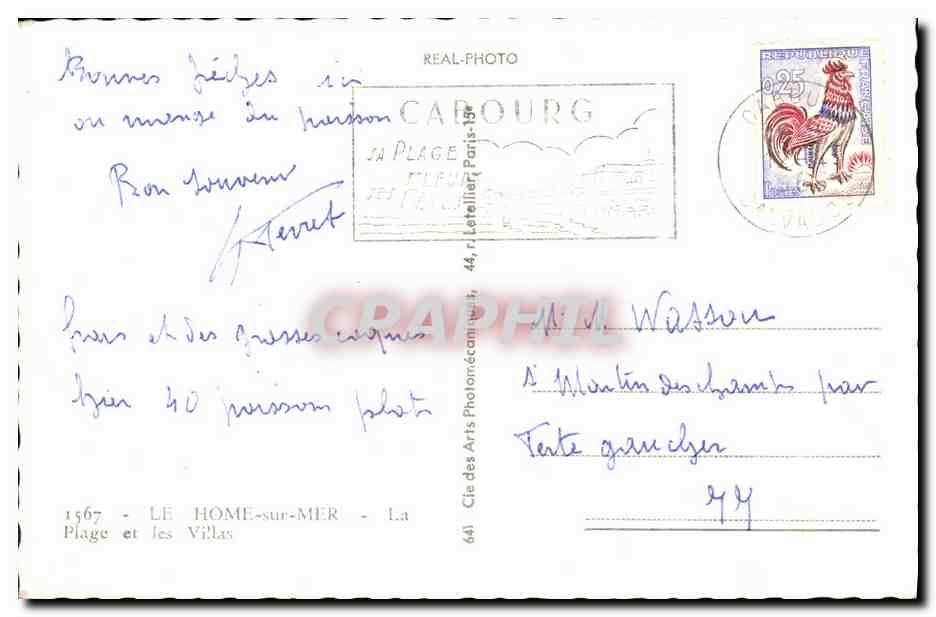 REAL-PHOTO
Bonnes pêches ici
on mange du poisson
Bon souvenir
CABOURG
SA PLAGE
FLEUR
SES
REPUBLIQUE FRANÇAISE
0,25
Postes
CABOURG
CALVADOS
CRAPHIL
frais et des grosses coques
hier 40 poissons plats
1567 - LE HOME-sur-MER - La
Plage et les Villas
641 Cie des Arts Photomécaniques, 44, r. Letellier, Paris-15e
Wasson
St Martin des champs par
Ferte gaucher
77